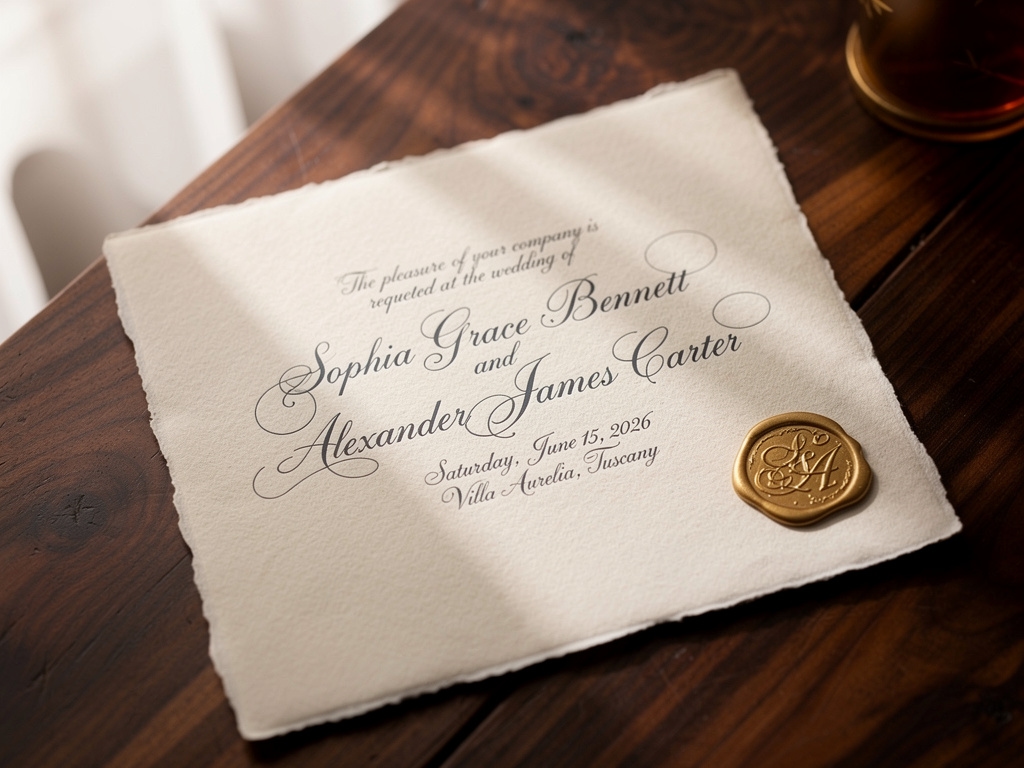 The pleasure of your company is
requeted at the wedding of
Sophia Grace Bennett
and
Alexander James Carter
Saturday, June 15, 2026
Villa Aurelia, Tuscany
SA